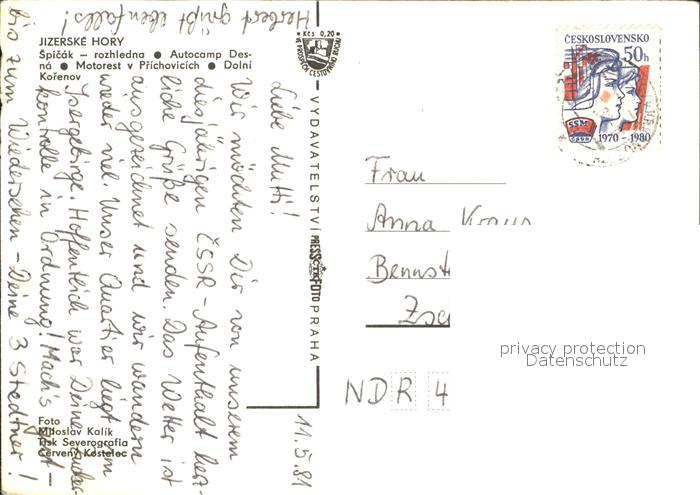 JIZERSKÉ HORY
Špičák – rozhledna ● Autocamp Des-
ná ● Motorest v Příchovicích ● Dolní
Kořenov
Kčs 0,20
VE PROSPĚCH CESTOVNÍHO RUCHU
VYDAVATELSTVÍ PRESSFOTO PRAHA
ČESKOSLOVENSKO
50h
SSM
ČSSR
1970 – 1980
11.5.81
Liebe Mutti!
Wir möchten Dir von unserem
diesjährigen ČSSR-Aufenthalt herz-
liche Grüße senden. Das Wetter ist
ausgezeichnet und wir wandern
wieder viel. Unser Quartier liegt im
Isergebirge. Hoffentlich war Deine Zucker-
kontrolle in Ordnung! Mach's gut –
bis zum Wiedersehen – Deine 3 Stedtner!
Herbert grüßt ebenfalls!
Frau
Anna
Bennst
Zsc
NDR 4
Foto
Miloslav Kalík
Tisk Severografia
Červený Kostelec
privacy protection
Datenschutz